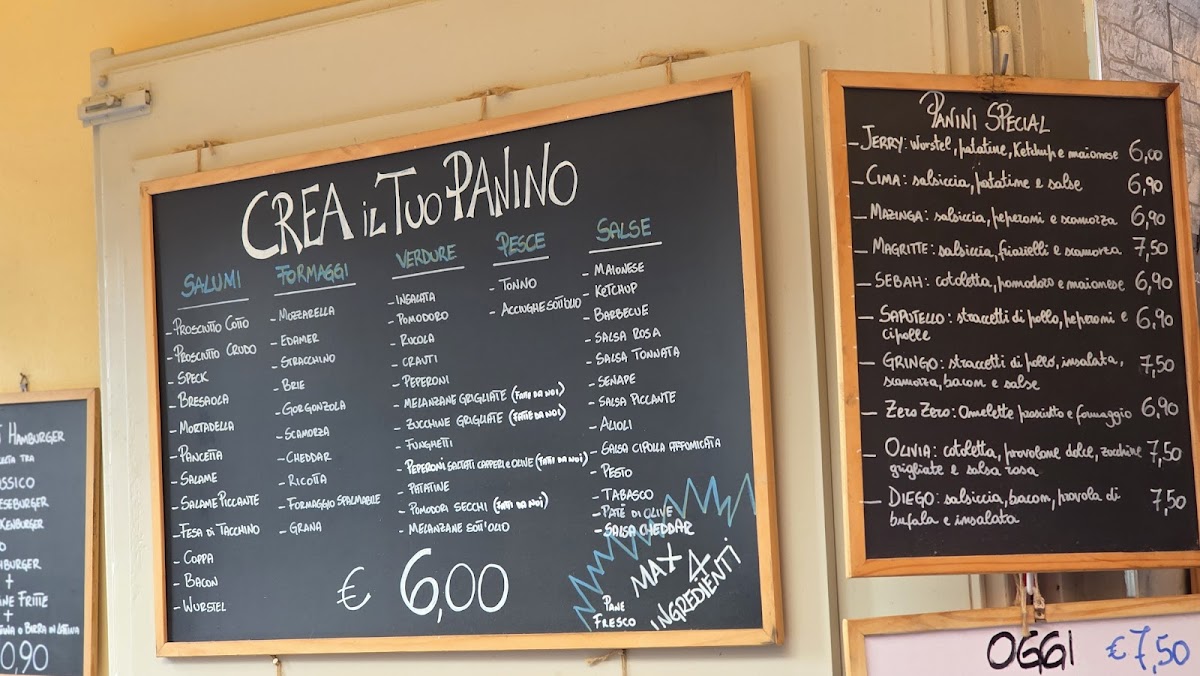 CREA iL TUO PANINO
SALUMI
- PROSCIUTTO COTTO
- PROSCIUTTO CRUDO
- SPECK
- BRESAOLA
- MORTADELLA
- PANCETTA
- SALAME
- SALAME PICCANTE
- FESA DI TACCHINO
- COPPA
- BACON
- WURSTEL
FORMAGGI
- MOZZARELLA
- EDAMER
- STRACCHINO
- BRIE
- GORGONZOLA
- SCAMORZA
- CHEDDAR
- RICOTTA
- FORMAGGIO SPALMABILE
- GRANA
VERDURE
- INSALATA
- POMODORO
- RUCOLA
- CRAUTI
- PEPERONI
- MELANZANE GRIGLIATE (FATTE DA NOI)
- ZUCCHINE GRIGLIATE (FATTE DA NOI)
- FUNGHETTI
- PEPERONI SALTATI CAPPERI E OLIVE (FATTI DA NOI)
- PATATINE
- POMODORI SECCHI (FATTI DA NOI)
- MELANZANE SOTT'OLIO
PESCE
- TONNO
- ACCIUGHE SOTT'OLIO
SALSE
- MAIONESE
- KETCHUP
- BARBECUE
- SALSA ROSA
- SALSA TONNATA
- SENAPE
- SALSA PICCANTE
- ALIOLI
- SALSA CIPOLLA AFFUMICATA
- PESTO
- TABASCO
- PATÈ DI OLIVE
- SALSA CHEDDAR
€ 6,00
PANE
FRESCO
MAX 4
INGREDIENTI
PANINI SPECIAL
- JERRY: wurstel, patatine, Ketchup e maionese 6,00
- CIMA: salsiccia, patatine e salse 6,90
- MAZINGA: salsiccia, peperoni e scamorza 6,90
- MAGRITTE: salsiccia, friarielli e scamorza 7,50
- SEBAH: cotoletta, pomodoro e maionese 6,90
- SAPUTELLO: straccetti di pollo, peperoni e 6,90
cipolle
- GRINGO: straccetti di pollo, insalata, 7,50
scamorza, bacon e salse
- ZERO ZERO: Omelette prosciutto e formaggio 6,90
- OLIVIA: cotoletta, provolone dolce, zucchine 7,50
grigliate e salsa rosa
- DIEGO: salsiccia, bacon, provola di 7,50
bufala e insalata
HAMBURGER
TRA
+
+
O BIRRA IN LATTINA
0,90
OGGI €7,50